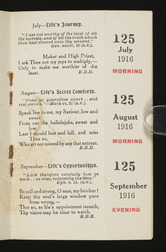 July—Life's Journey.
"I am not worthy of the least of all
the mercies, and of all the truth which
thou hast shewed unto thy servant."
Gen. xxxii. 10 (R.V.).
Maker and High Priest,
I ask Thee not my joys to multiply,—
Only to make me worthier of the
least.
E.B.B.
125
July
1916
MORNING
August—Life's Secret Comforts.
"Come ye yourselves apart . . . and
rest awhile."—Mark vi. 31 (R.V.).
Speak low to me, my Saviour, low and
sweet
From out the hallelujahs, sweet and
low,
Lest I should fear and fall, and miss
Thee so,
Who art not missed by any that entreat.
E.B.B.
125
August
1916
MORNING
September—Life's Opportunities.
"Look therefore carefully how ye
walk . . .
Eph. v. 15 (R.V.).
Be still and strong, O man, my brother!
Keep thy soul's large window pure
from wrong,—
That so, as life's appointment issueth,
Thy vision may be clear to watch.
E.B.B.
125
September
1916
EVENING